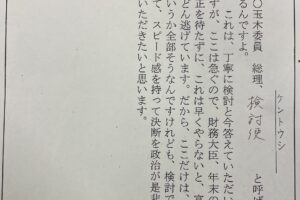 ケントウシ
○玉木委員　総理、検討使　と呼ば
るんですよ。
これは、丁寧に検討と今答えていただい
すが、ここは急ぐので、財務大臣、年末の
正を待たずに、これは早くやらないと、富
どん逃げています。だから、ここだけは、
いうか全部そうなんですけれども、検討で
て、スピード感を持って決断を政治が是非
いただきたいと思います。